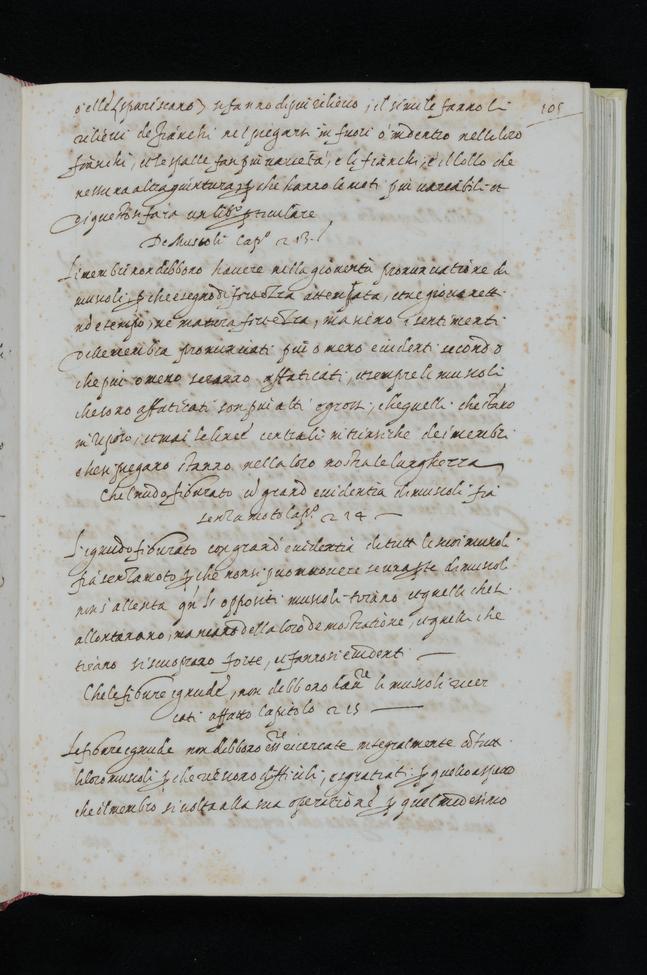 o elle (spariscano) si fanno di piu rilievo, il simile fanno li
105
rilievi de fianchi nel piegarsi in fuori o indentro nelle loro
fianchi, et le spalle fan piu varietà, e li fianchi, e il collo che
nessuna altra giuntura, che hanno le moti piu variabili et
di questo si farà un libº particulare
De Muscoli Capº 213.
Le membri non debbono havere nella gioventù pronuntiatione di
muscoli, che è segno di fortezza attempata, et ne giovanetti
nò è tempo, ne matura fortezza, ma sieno i sentimenti
delle membra pronuntiati piu o meno evidenti secondo
che piu o meno saranno affaticati, et sempre li muscoli
che sono affaticati son piu alti o grossi, che quelli che stano
in riposo, et mai le linee centrali intrinsiche de i membri
che si piegano stanno nella loro nostrale lunghezza
Che l nudo figurato cō grand' evidentia di muscoli fia
senza moto Capº 214
L' ignudo figurato con grand' evidentia di tutti le suoi muscoli
fia senza moto che non si puo movere se una pte di muscoli
non s' allenta qn̄ li oppositi muscoli tirano et quelli che s'
allontanano, mancano della loro demostratione, et quelli che
tirano si scuoprano forte, et fannosi evidenti
Che le figure ignude, non debbono hauere li muscoli ricer
cati affatto Capitolo 215
Le figure ignude non debbono ēre ricercate integralmente cō tutti
li loro muscoli che riescono difficili, e sgratiati quello aspetto
che il membro si volta alla sua operatione quel medesimo